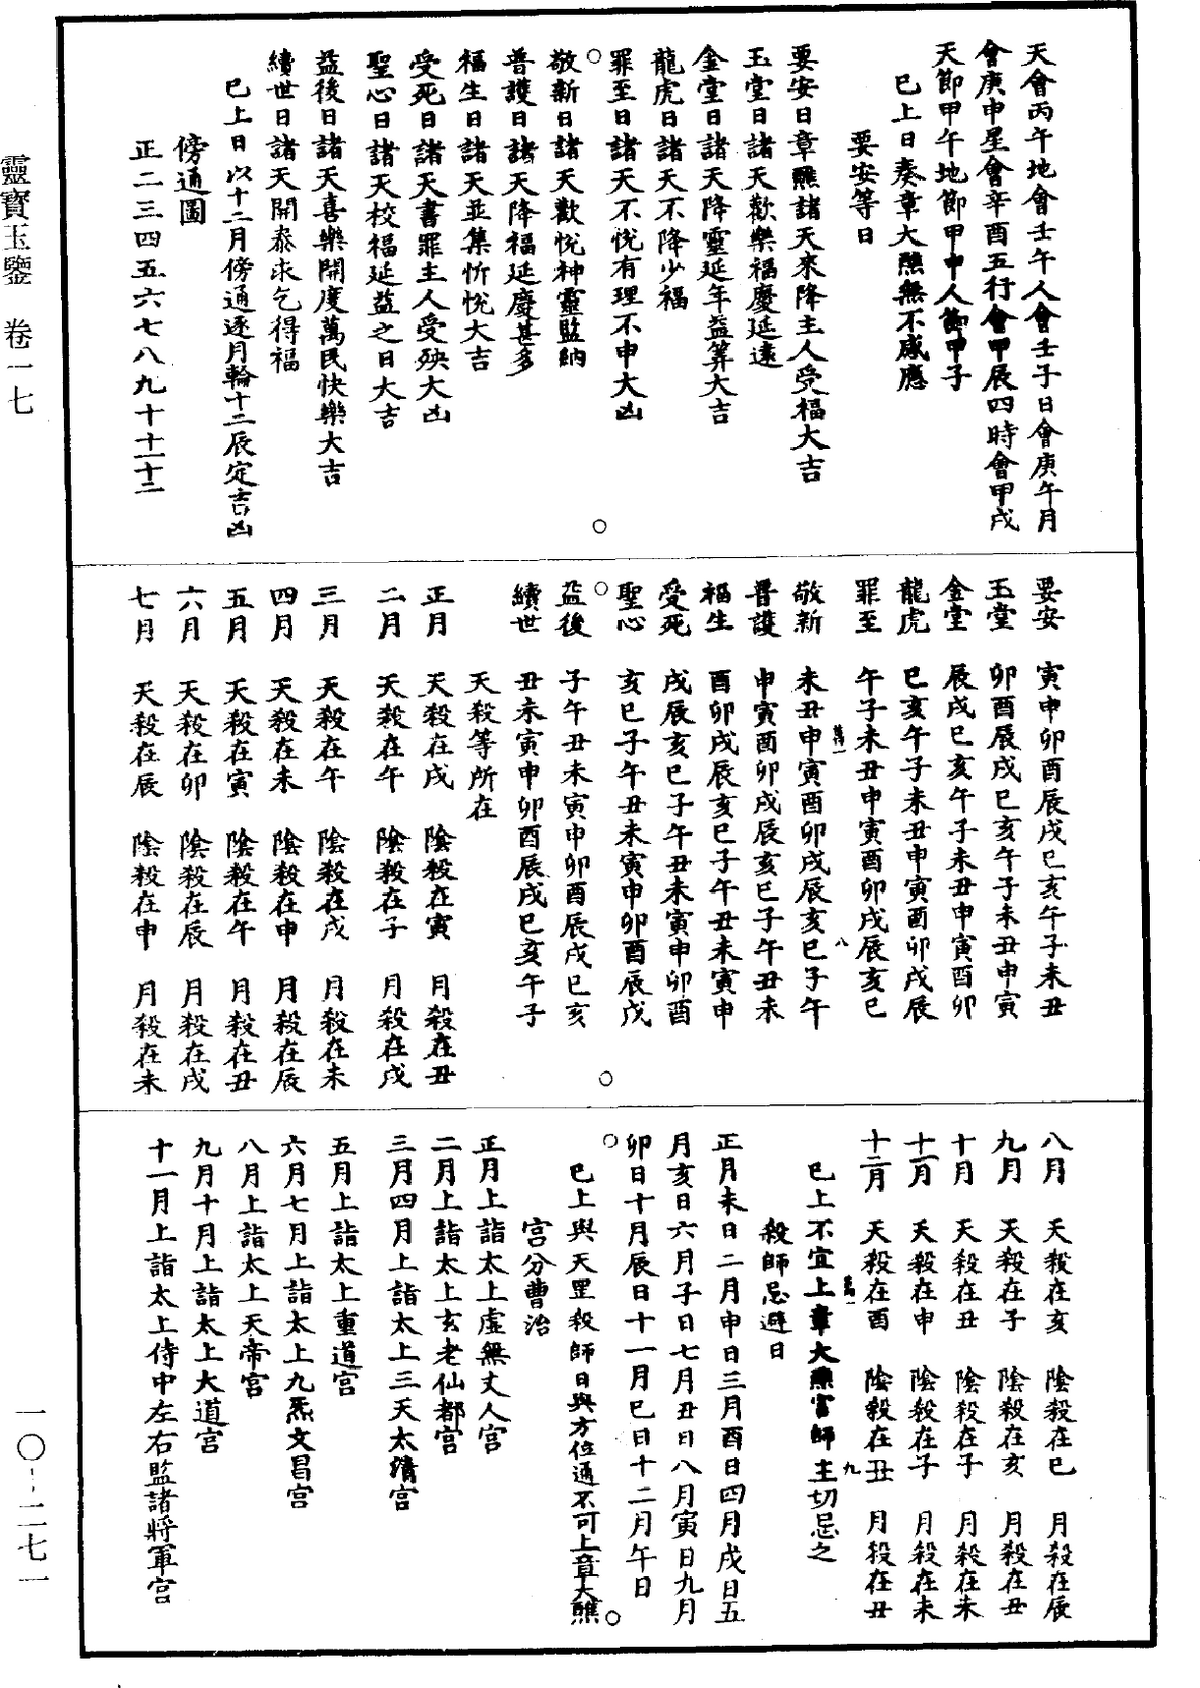 天會丙午地會壬午人會壬子日會庚午月
會庚申星會辛酉五行會甲辰四時會甲戌
天節甲午地節甲申人節甲子
已上日奏章大醮無不感應
要安等日
要安日章醮諸天來降主人受福大吉
玉堂日諸天歡樂福慶延遠
金堂日諸天降靈延年益筭大吉
龍虎日諸天不降少福
罪至日諸天不悅有理不申大凶
敬新日諸天歡悅神靈監納
普護日諸天降福延慶甚多
福生日諸天並集忻悅大吉
受死日諸天書罪主人受殃大凶
聖心日諸天校福延益之日大吉
益後日諸天喜樂開度萬民快樂大吉
續世日諸天開泰求乞得福
已上日以十二月傍通逐月輪十二辰定吉凶
傍通圖
正二三四五六七八九十十一十二
要安　寅申卯酉辰戌巳亥午子未丑
玉堂　卯酉辰戌巳亥午子未丑申寅
金堂　辰戌巳亥午子未丑申寅酉卯
龍虎　巳亥午子未丑申寅酉卯戌辰
罪至　午子未丑申寅酉卯戌辰亥巳
敬新　未丑申寅酉卯戌辰亥巳子午
普護　申寅酉卯戌辰亥巳子午丑未
福生　酉卯戌辰亥巳子午丑未寅申
受死　戌辰亥巳子午丑未寅申卯酉
聖心　亥巳子午丑未寅申卯酉辰戌
益後　子午丑未寅申卯酉辰戌巳亥
續世　丑未寅申卯酉辰戌巳亥午子
天殺等所在
正月　天殺在戌　陰殺在寅　月殺在丑
二月　天殺在午　陰殺在子　月殺在戌
三月　天殺在午　陰殺在戌　月殺在未
四月　天殺在未　陰殺在申　月殺在辰
五月　天殺在寅　陰殺在午　月殺在丑
六月　天殺在卯　陰殺在辰　月殺在戌
七月　天殺在辰　陰殺在申　月殺在未
八月　天殺在亥　陰殺在巳　月殺在辰
九月　天殺在子　陰殺在亥　月殺在丑
十月　天殺在丑　陰殺在子　月殺在未
十一月　天殺在申　陰殺在子　月殺在未
十二月　天殺在酉　陰殺在丑　月殺在丑
已上不宜上章大醮官師主切忌之
殺師忌避日
正月未日二月申日三月酉日四月戌日五
月亥日六月子日七月丑日八月寅日九月
卯日十月辰日十一月巳日十二月午日
已上與天罡殺師日與方位通不可上章大醮
宮分曹治
正月上詣太上虛無丈人宮
二月上詣太上玄老仙都宮
三月四月上詣太上三天太清宮
五月上詣太上重道宮
六月七月上詣太上九炁文昌宮
八月上詣太上天帝宮
九月十月上詣太上大道宮
十一月上詣太上侍中左右監諸將軍宮
靈寶玉鑒　卷一七
一〇--二七一